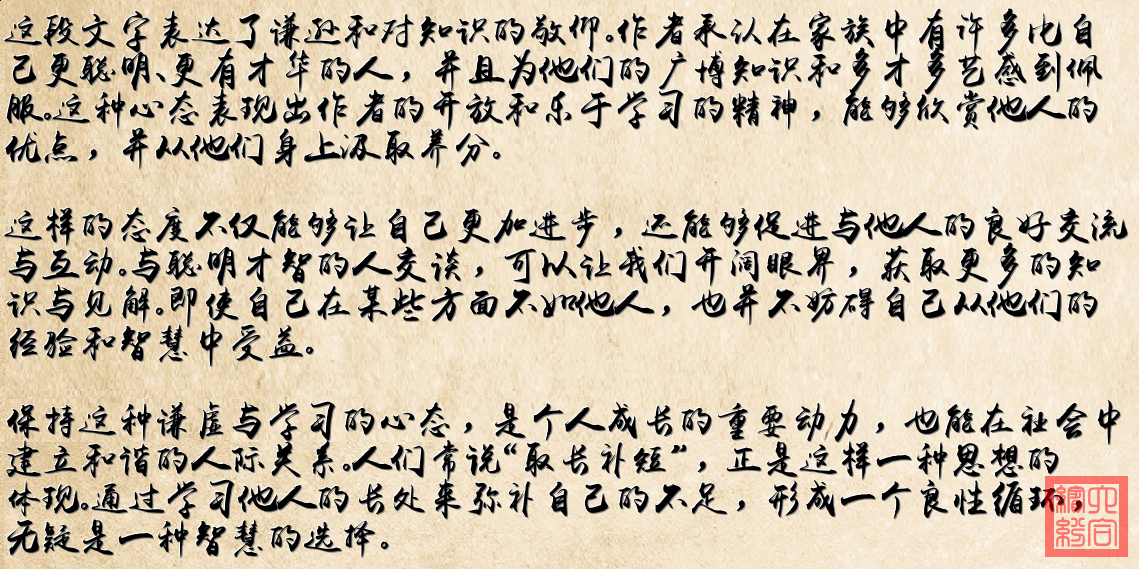 这段文字表达了谦逊和对知识的敬仰。作者承认在家族中有许多比自
己更聪明、更有才华的人，并且为他们的广博知识和多才多艺感到佩
服。这种心态表现出作者的开放和乐于学习的精神，能够欣赏他人的
优点，并从他们身上汲取养分。
这样的态度不仅能够让自己更加进步，还能够促进与他人的良好交流
与互动。与聪明才智的人交谈，可以让我们开阔眼界，获取更多的知
识与见解。即使自己在某些方面不如他人，也并不妨碍自己从他们的
经验和智慧中受益。
保持这种谦虚与学习的心态，是个人成长的重要动力，也能在社会中
建立和谐的人际关系。人们常说“取长补短”，正是这样一种思想的
体现。通过学习他人的长处来弥补自己的不足，形成一个良性循环，
无疑是一种智慧的选择。